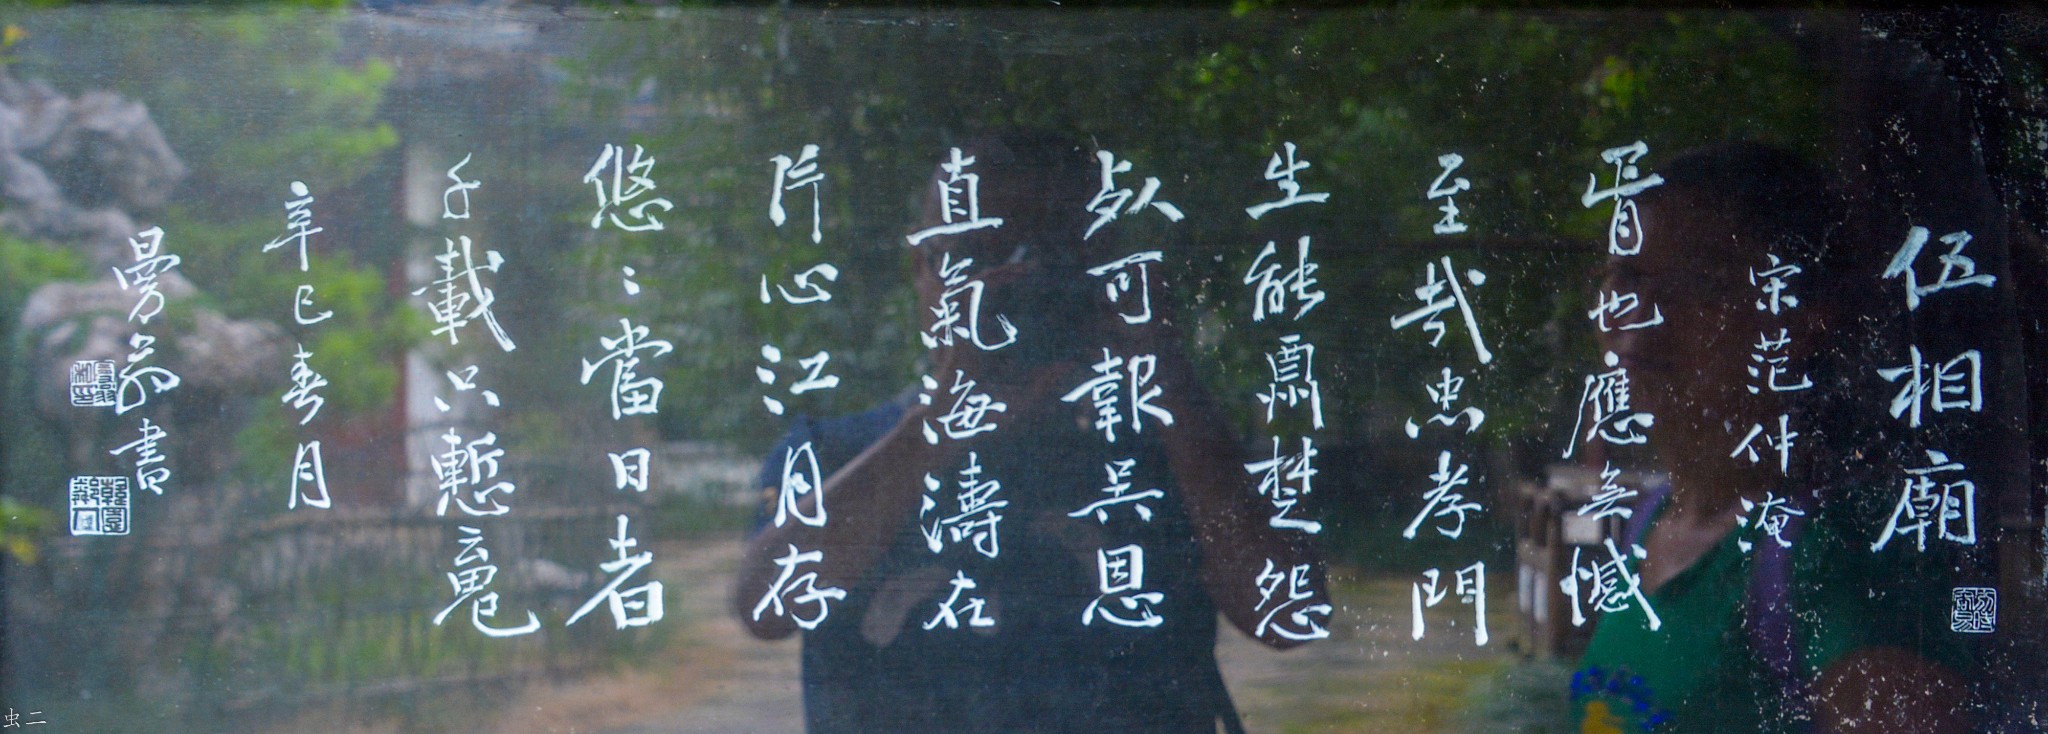 伍相廟
宋范仲淹
胥也應無憾
至哉忠孝門
生能酬楚怨
死可報吳恩
直氣海濤在
片心江月存
悠〻當日者
千載只慙魂
辛巳春月
曼翁書
虫二